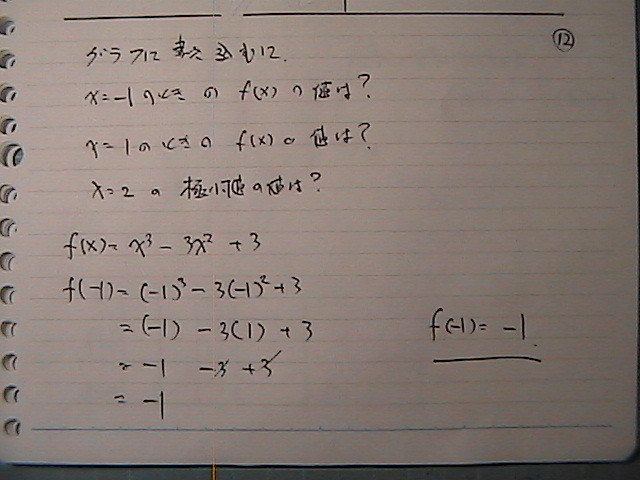 ⑫
グラフに書き込む
x=-1のときの f(x)の値は?
x=1のときの f(x)の値は?
x=2の 極小値の値は?
f(x)= x³ - 3x² + 3
f(-1)= (-1)³ - 3(-1)² + 3
= (-1) - 3(1) + 3
= -1 -3 +3
= -1
f(-1)= -1.